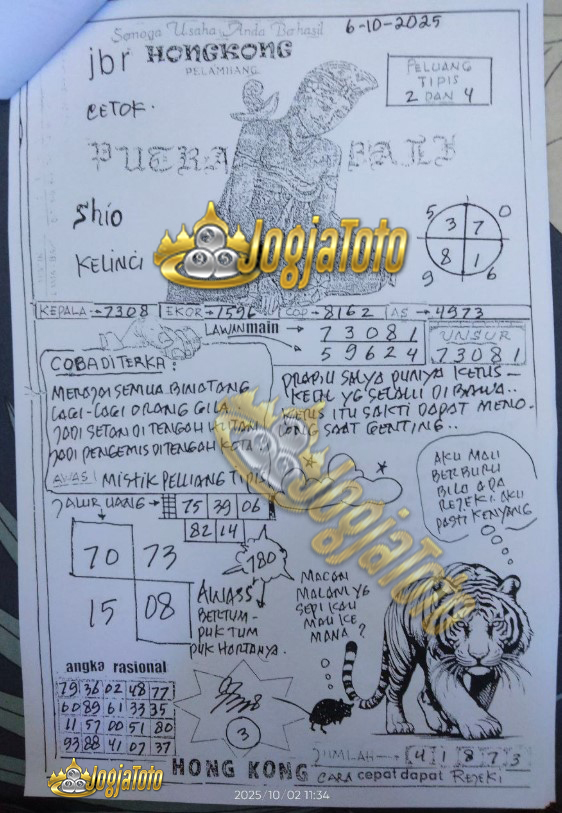 Semoga Usaha Anda Berhasil
6-10-2025
jbr HONGKONG
PELAMBANG
PELUANG
TIPIS
2 DAN 4
CETOK.
PUTRA PATIH
Shio
KELINCI
JogjaToto
5 3 7 0
9 8 1 6
KEPALA→7308 EKOR→1596 COP→8162 AS→4973
LAWAN main → 7 3 0 8 1
5 9 6 2 4
UNSUR
7 3 0 8 1
COBA DITERKA:
MENJADI SEMUA BINATANG
LAGI-LAGI ORANG GILA
JADI SETAN DI TENGAH HUTAN
JADI PENGEMIS DI TENGAH KOTA..
AWAS! MISTIK PELUANG TIPIS
PRABU SALYA PUNYA KERIS
KECIL YG SELALU DI BAWA..
KERIS ITU SAKTI DAPAT MENO-
LONG SAAT GENTING..
JALUR UANG → 75 39 06
82 14
JogjaToto
AKU MAU
BERBURU
BILA ADA
REJEKI. AKU
PASTI KENYANG
70 73
15 08
780
AWASS
BERTUM-
PUK TUM
PUK HARTANYA.
MACAN
MALAM YG
SEPI KAU
MAU KE
MANA?
angka rasional
79 36 02 48 77
60 89 61 33 35
11 57 00 51 80
93 88 41 07 37
3
JUMLAH → 4 1 8 7 3
JogjaToto
HONG KONG
CARA cepat dapat REJEKI
2025/10/02 11:34